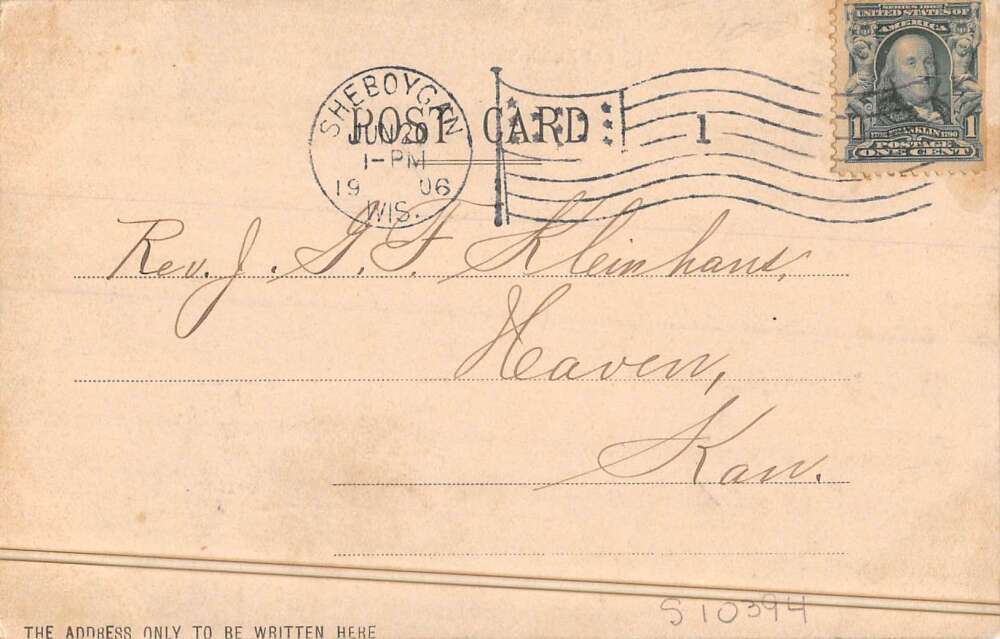 SERIES 1902
UNITED STATES OF
AMERICA
1 1706 FRANKLIN 1790 1
POSTAGE
ONE CENT
SHEBOYGAN
JUN 20
1-PM
19 06
WIS.
POST CARD
1
Rev. J. G. F. Kleinhans,
Haven,
Kan.
S10394
THE ADDRESS ONLY TO BE WRITTEN HERE